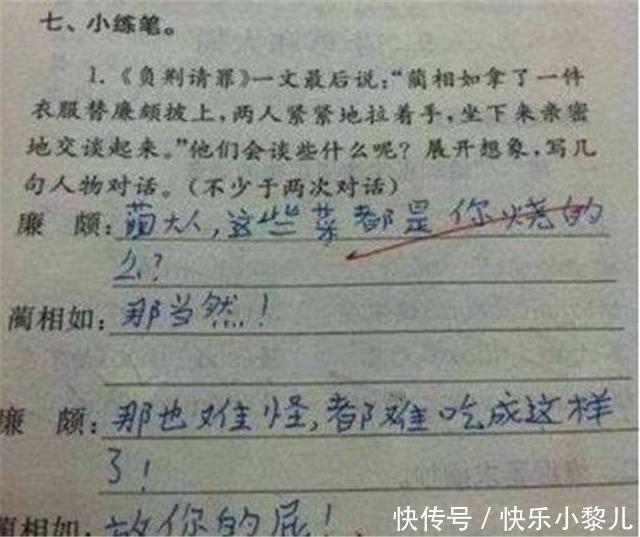 七、小练笔。
1.《负荆请罪》一文最后说:“蔺相如拿了一件
衣服替廉颇披上,两人紧紧地拉着手,坐下来亲密
地交谈起来。”他们会谈些什么呢?展开想象,写几
句人物对话。(不少于两次对话)
廉 颇:蔺大人,这些菜都是你烧的
么?
蔺相如:那当然!
廉 颇:那也难怪,都难吃成这样
了!
蔺相如:放你的屁!
快传号/快乐小黎儿